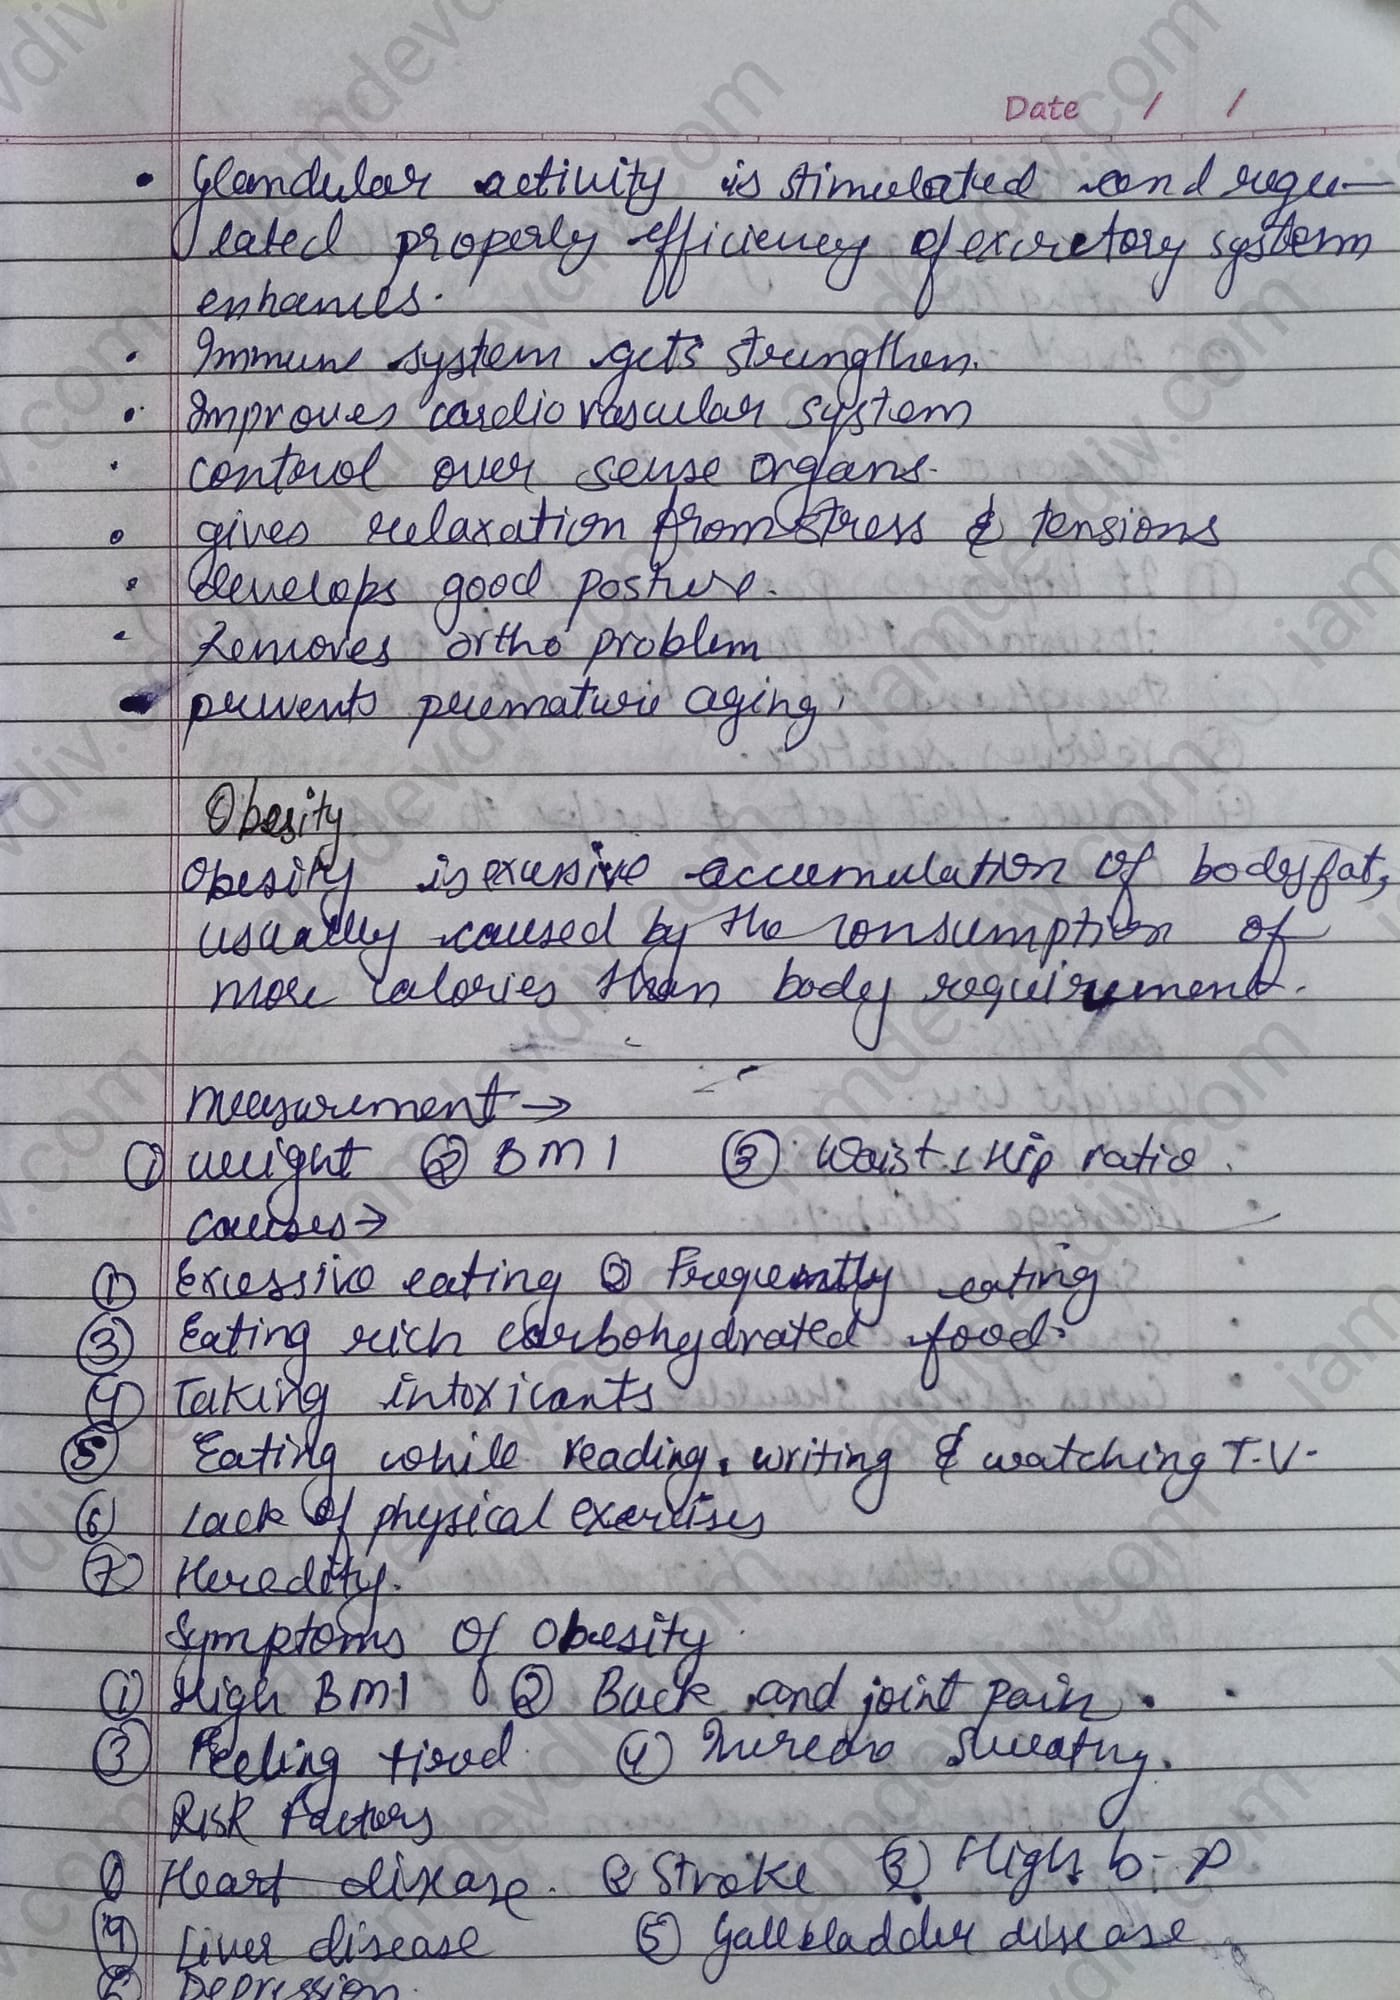 Date / /
• Glandular activity is stimulated and regu-
lated properly efficiency of excretory system
enhances.
• Immune system gets strengthen.
• Improves cardiovascular system
• control over sense organs.
• gives relaxation from stress & tensions
• develops good posture.
• Removes ortho problem
• prevents premature aging.
Obesity
Obesity is excessive accumulation of body fat,
usually caused by the consumption of
more calories than body requirement.
measurement →
① weight ② BMI ③ Waist Hip ratio.
causes →
① Excessive eating ② Frequently eating
③ Eating rich carbohydrated food.
④ Taking intoxicants
⑤ Eating while reading, writing & watching T.V.
⑥ Lack of physical exercises
⑦ Heredity.
Symptoms of Obesity
① High BMI ② Back and joint pain.
③ Feeling tired ④ Sweatng.
Risk Factors
① Heart disease. ② Stroke ③ High b.P
④ Liver disease ⑤ Gallbladder disease
⑥ Depression.
iamdevdiv.com